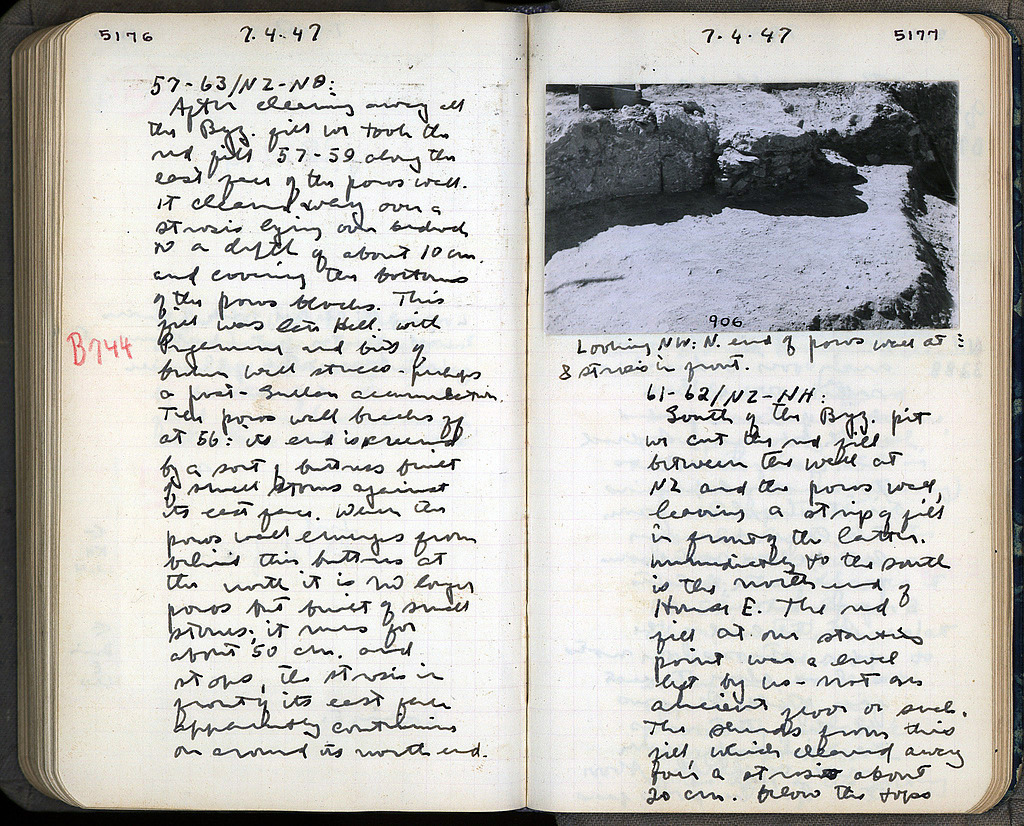 5176
7.4.47
57-63/NZ-NΘ:
After clearing away all
the Byz. fill we took the
red fill 57-59 along the
east face of the poros wall.
It cleared away over a
strosis lying over bedrock
to a depth of about 10 cm.
and covering the bottoms
of the poros blocks. This
fill was late Hell. with
B744
Pergamene and bits of
broken wall stucco - perhaps
a post-Sullan accumulation.
The poros wall breaks off
at 56: its end is screened
by a sort of buttress built
of small stones against
its east face. When the
poros wall emerges from
behind this buttress at
the north it is no longer
poros but built of small
stones; it runs for
about 50 cm. and
stops, the strosis in
front of its east face
apparently continuing
on around its north end.
7.4.47
5177
906
Looking NW: N. end of poros wall at
& strosis in front.
61-62/NZ-NH:
South of the Byz. pit
we cut the red fill
between the wall at
NZ and the poros wall,
leaving a strip of fill
in front of the latter.
Immediately to the south
is the north end of
House E. The red
fill at our starting
point was a level
left by us - not an
ancient floor or such.
The sherds from this
fill, which cleared away
over a strosis about
20 cm. below the tops